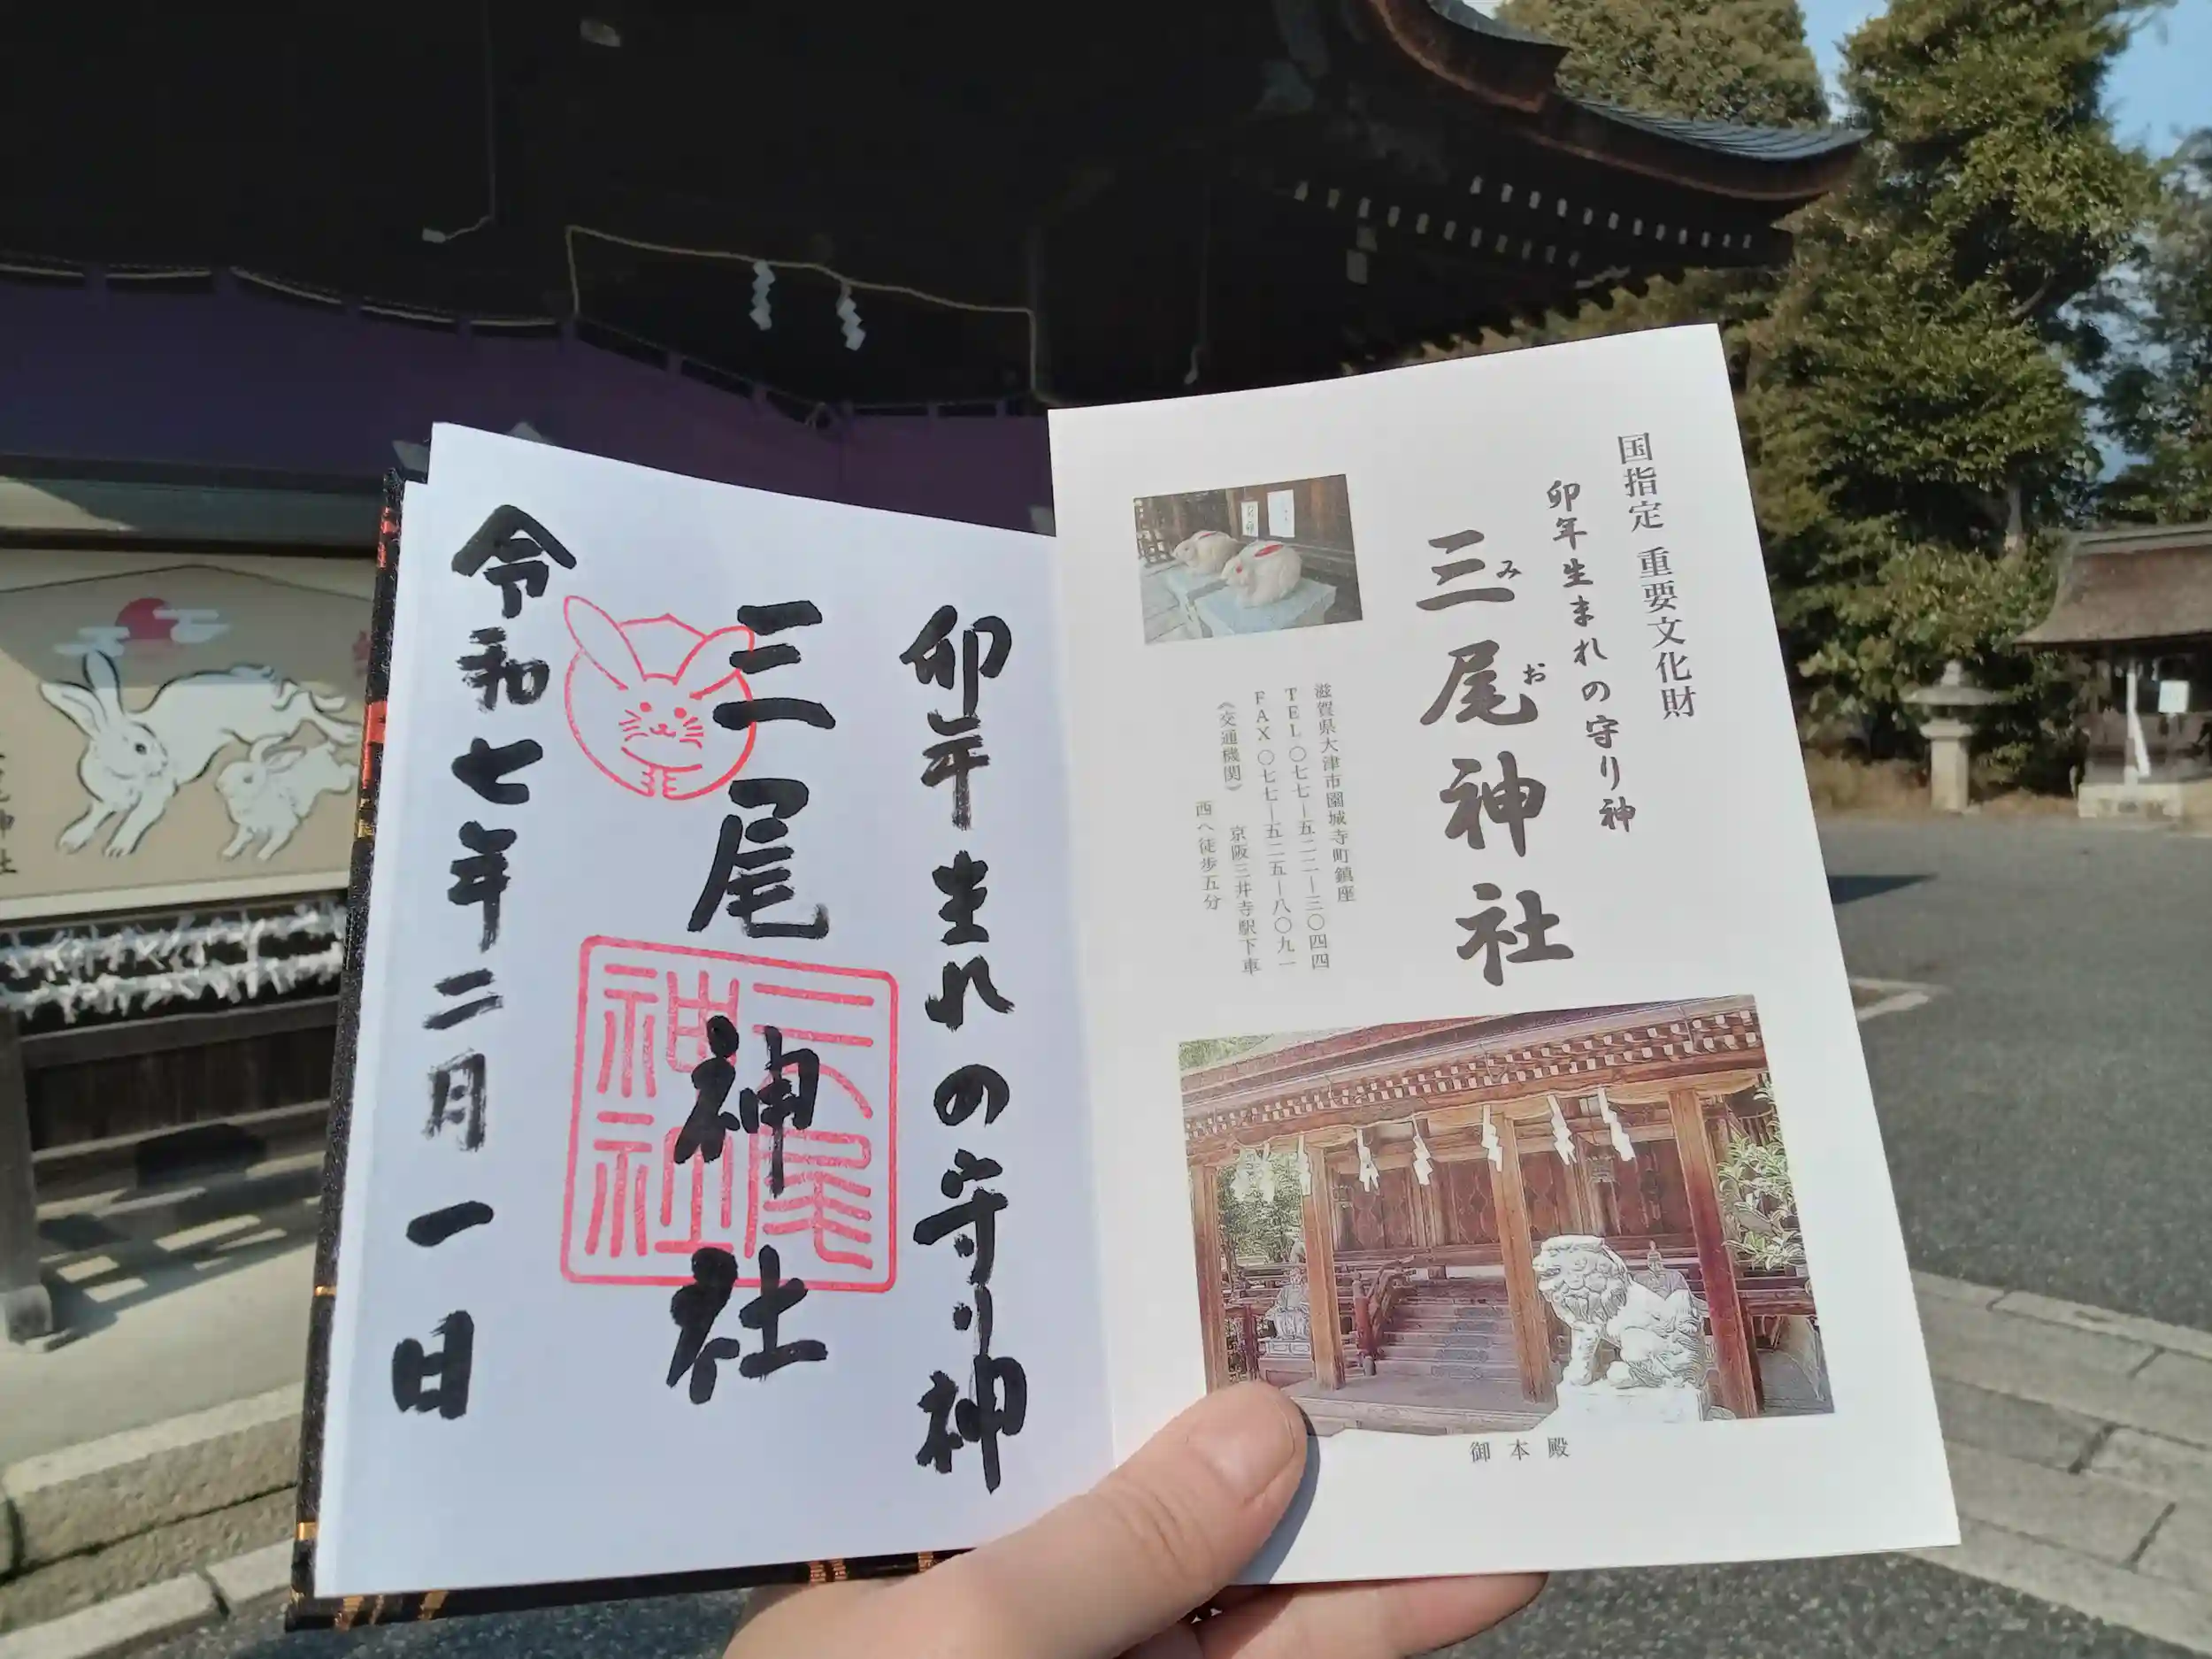 国指定 重要文化財
卯年生まれの守り神
三尾神社
み お
滋賀県大津市園城寺町鎮座
TEL〇七七―五二二―三〇四四
FAX〇七七―五二五―八〇九一
《交通機関》 京阪三井寺駅下車
西へ徒歩五分
御本殿
卯年生れの守り神
三尾神社
令和七年二月一日
三尾
神社